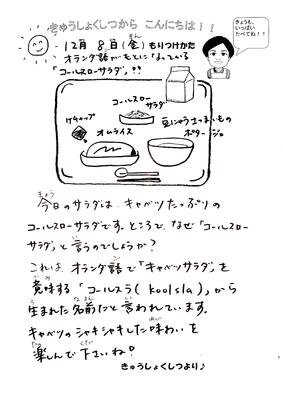 きゅうしょくしつから こんにちは!!
きょうも、
いっぱい
たべてね!!
12月 8日(金) もりつけかた
オランダ語がもとになっている
「コールスローサラダ」!!
コールスロー
サラダ
ケチャップ
オムライス
豆にゅう入りさつまいもの
ポタージュ
今日のサラダは、キャベツたっぷりの
コールスローサラダです。ところで、なぜ「コールスロー
サラダ」と言うのでしょうか?
これは、オランダ語で「キャベツサラダ」を
意味する「コールスラ(koolsla)」から
生まれた名前だと言われています。
キャベツのシャキシャキした味わいを
楽しんで下さいね!
きゅうしょくしつより♪